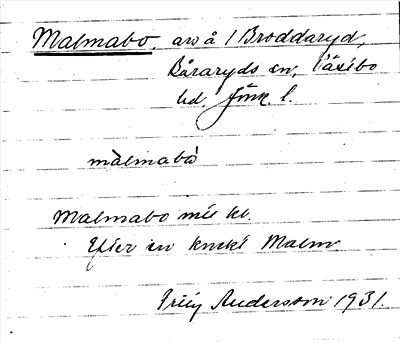 Malmabo, avs å 1 Broddaryd,
Båraryds sn, Västbo
hd, Jönk. l.
màlmabò
Malmabo
Efter en knekt Malm.
Andersson 1931.